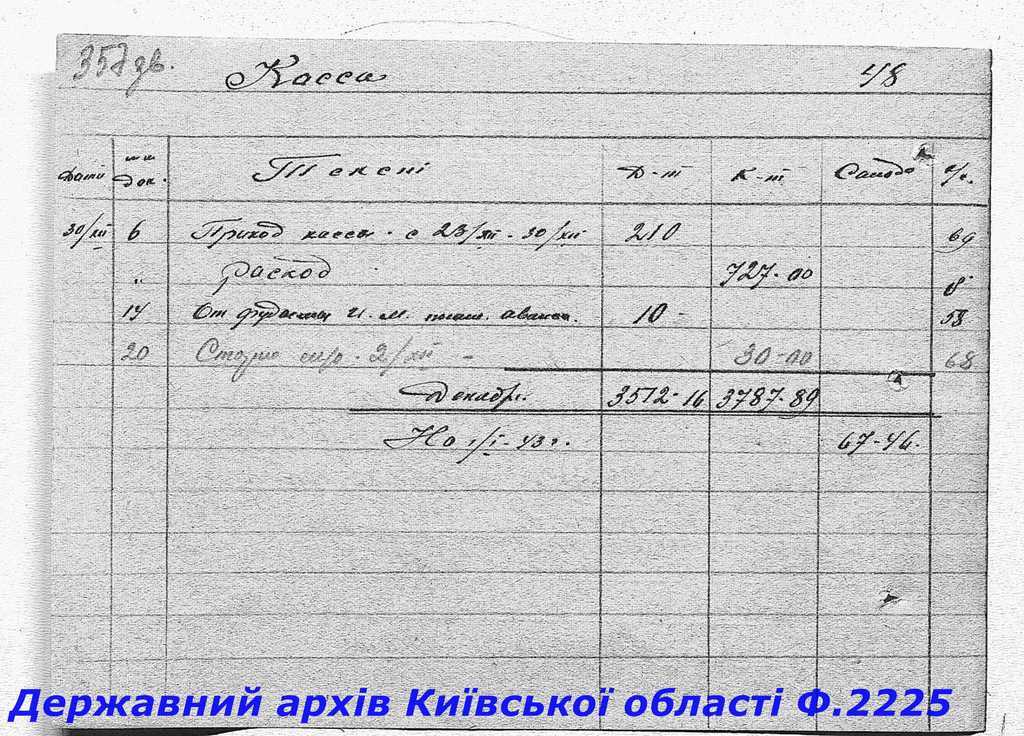 357 зв.
Касса 48
Дата №№ док. Текст Д-т К-т Сальдо
30/XII 6 Приход кассы с 23/XII - 30/XII 210 69
" расход 727-00 8
14 От И. М. аванса. 10 - 58
20 2/XII - 30-00 68
Декабрь 3512-16 3787-89
На 1/I-43 г. 67-46.
Державний архів Київської області Ф.2225